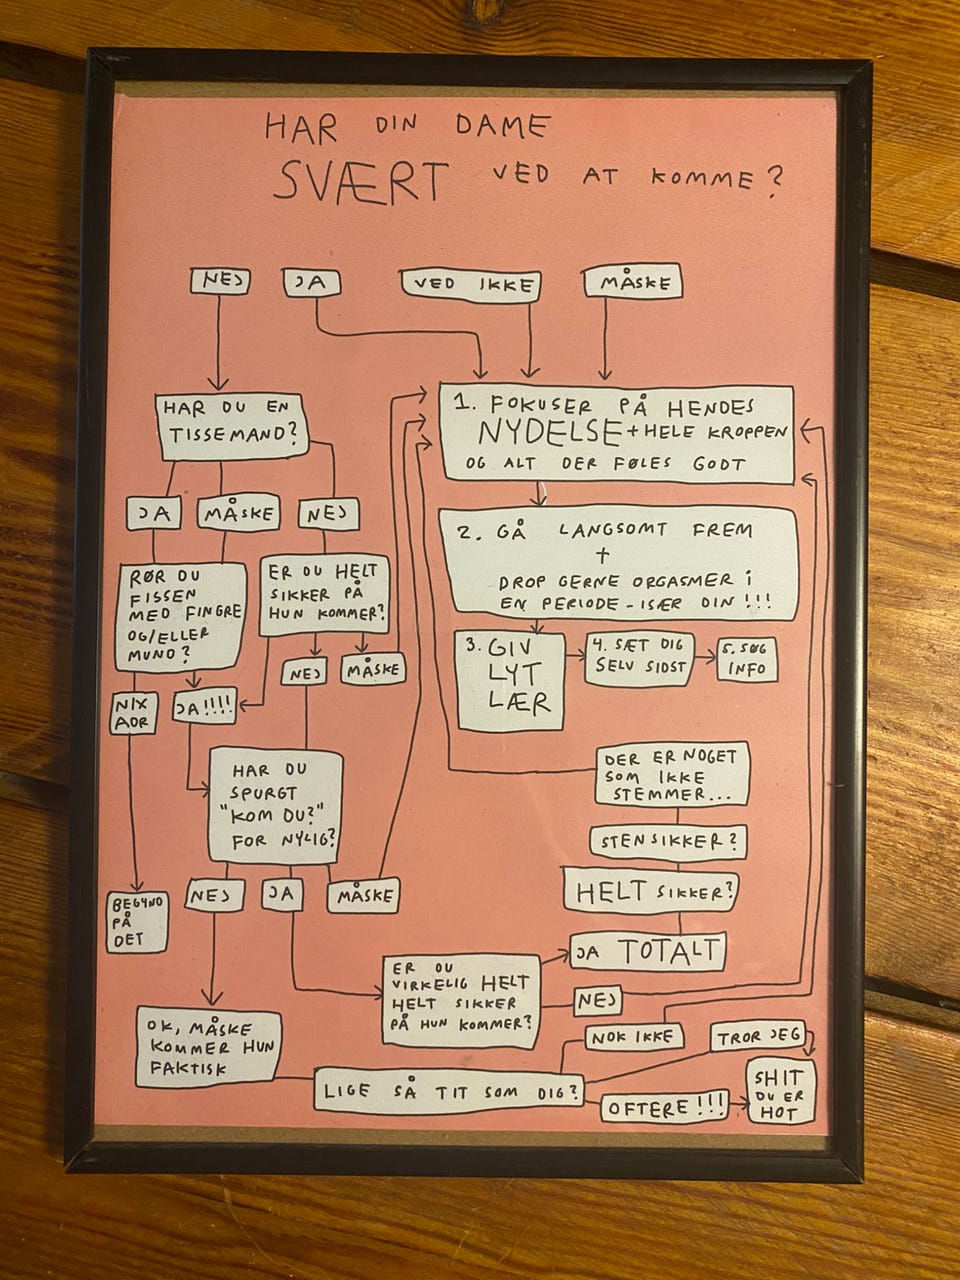 HAR DIN DAME
SVÆRT VED AT KOMME?
NEJ
JA
VED IKKE
MÅSKE
HAR DU EN
TISSEMAND?
JA
MÅSKE
NEJ
RØR DU
FISSEN
MED FINGRE
OG/ELLER
MUND?
ER DU HELT
SIKKER PÅ
HUN KOMMER?
NEJ
MÅSKE
NIX
ADR
JA!!!!
HAR DU
SPURGT
"KOM DU?"
FOR NYLIG?
NEJ
JA
MÅSKE
BEGYND
PÅ
DET
OK, MÅSKE
KOMMER HUN
FAKTISK
1. FOKUSER PÅ HENDES
NYDELSE + HELE KROPPEN
OG ALT DER FØLES GODT
2. GÅ LANGSOMT FREM
+
DROP GERNE ORGASMER i
EN PERIODE - ISÆR DIN!!!
3. GIV
LYT
LÆR
4. SÆT DIG
SELV SIDST
5. SØG
INFO
DER ER NOGET
SOM IKKE
STEMMER...
STENSIKKER?
HELT SIKKER?
JA TOTALT
ER DU
VIRKELIG HELT
HELT SIKKER
PÅ HUN KOMMER?
NEJ
NOK IKKE
TROR JEG
LIGE SÅ TIT SOM DIG?
OFTERE!!!
SHIT
DU ER
HOT